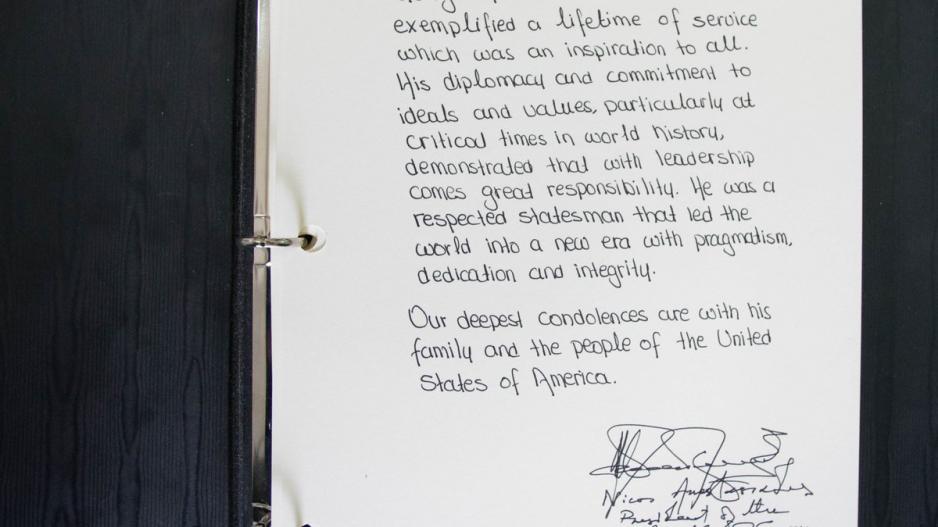 exemplified a lifetime of service
which was an inspiration to all.
His diplomacy and commitment to
ideals and values, particularly at
critical times in world history,
demonstrated that with leadership
comes great responsibility. He was a
respected statesman that led the
world into a new era with pragmatism,
dedication and integrity.
Our deepest condolences are with his
family and the people of the United
States of America.
Nicos Anastasiades
President of the